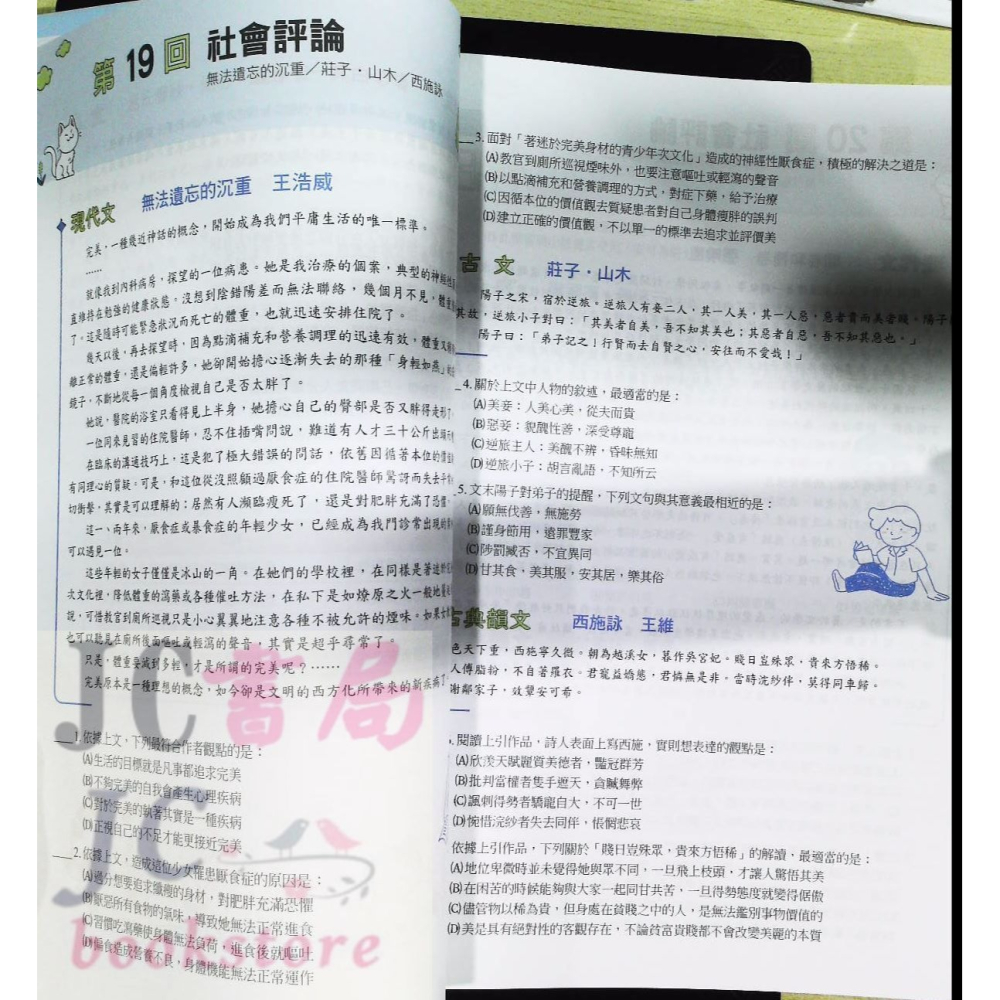 第19回 社會評論
無法遺忘的沉重／莊子・山木／西施詠
現代文 無法遺忘的沉重 王浩威
完美，一種幾近神話的概念，開始成為我們平庸生活的唯一標準。
……
就像我到內科病房，探望的一位病患。她是我治療的個案，典型的神經性
直維持在勉強的健康狀態。沒想到陰錯陽差而無法聯絡，幾個月不見，體重
了。這是隨時可能緊急狀況而死亡的體重，也就迅速安排住院了。
幾天以後，再去探望時，因為點滴補充和營養調理的迅速有效，體重又
離正常的體重，還是偏輕許多，她卻開始擔心逐漸失去的那種「身輕如燕」
鏡子，不斷地從每一個角度檢視自己是否太胖了。
她說，醫院的浴室只看得見上半身，她擔心自己的臀部是否又胖得走形了
一位同來見習的住院醫師，忍不住插嘴問說，難道有人才三十公斤出頭
在臨床的溝通技巧上，這是犯了極大錯誤的問話，依舊因循著本位的價值
有同理心的質疑。可是，和這位從沒照顧過厭食症的住院醫師驚訝而失去平
切衝擊，其實是可以理解的：居然有人瀕臨瘦死了，還是對肥胖充滿了恐懼
這一、兩年來，厭食症或暴食症的年輕少女，已經成為我門診常出現的
可以遇見一位。
這些年輕的女子僅僅是冰山的一角。在她們的學校裡，在同樣是著迷
次文化裡，降低體重的瀉藥或各種催吐方法，在私下是如燎原之火一般地
說，可惜教官到廁所巡視只是小心翼翼地注意各種不被允許的煙味。如果
也可以聽見在廁所後面嘔吐或輕瀉的聲音，其實是超乎尋常了。
只是，體重要減到多輕，才是所謂的完美呢？……
完美原本是一種理想的概念，如今卻是文明的西方化所帶來的新疾病了
1.依據上文，下列最符合作者觀點的是：
(A)生活的目標就是凡事都追求完美
(B)不夠完美的自我會產生心理疾病
(C)對於完美的執著其實是一種疾病
(D)正視自己的不足才能更接近完美
2.依據上文，造成這位少女罹患厭食症的原因是：
(A)過分想要追求纖瘦的身材，對肥胖充滿恐懼
(B)厭惡所有食物的氣味，導致她無法正常進食
(C)習慣吃瀉藥使身體無法負荷，進食後就嘔吐
(D)偏食造成營養不良，身體機能無法正常運作
3.面對「著迷於完美身材的青少年次文化」造成的神經性厭食症，積極的解決之道是：
(A)教官到廁所巡視煙味外，也要注意嘔吐或輕瀉的聲音
(B)以點滴補充和營養調理的方式，對症下藥，給予治療
(C)因循本位的價值觀去質疑患者對自己身體瘦胖的誤判
(D)建立正確的價值觀，不以單一的標準去追求並評價美
古文 莊子・山木
陽子之宋，宿於逆旅。逆旅人有妾二人，其一人美，其一人惡，惡者貴而美者賤。陽子
其故，逆旅小子對曰：「其美者自美，吾不知其美也；其惡者自惡，吾不知其惡也。」
陽子曰：「弟子記之！行賢而去自賢之心，安往而不愛哉！」
4.關於上文中人物的敘述，最適當的是：
(A)美妾：人美心美，從夫而貴
(B)惡妾：貌醜性善，深受尊寵
(C)逆旅主人：美醜不辨，昏昧無知
(D)逆旅小子：胡言亂語，不知所云
5.文末陽子對弟子的提醒，下列文句與其意義最相近的是：
(A)願無伐善，無施勞
(B)謹身節用，遠罪豐家
(C)陟罰臧否，不宜異同
(D)甘其食，美其服，安其居，樂其俗
古典韻文 西施詠 王維
色天下重，西施寧久微。朝為越溪女，暮作吳宮妃。賤日豈殊眾，貴來方悟稀。
人傅脂粉，不自著羅衣。君寵益嬌態，君憐無是非。當時浣紗伴，莫得同車歸。
謝鄰家子，效顰安可希。
閱讀上引作品，詩人表面上寫西施，實則想表達的觀點是：
(A)欣羨天賦麗質美德者，豔冠群芳
(B)批判當權者隻手遮天，貪贓舞弊
(C)諷刺得勢者驕寵自大，不可一世
(D)惋惜浣紗者失去同伴，悵惘悲哀
依據上引作品，下列關於「賤日豈殊眾，貴來方悟稀」的解讀，最適當的是：
(A)地位卑微時並未覺得她與眾不同，一旦飛上枝頭，才讓人驚悟其美
(B)在困苦的時候能夠與大家一起同甘共苦，一旦得勢態度就變得倨傲
(C)儘管物以稀為貴，但身處在貧賤之中的人，是無法鑑別事物價值的
(D)美是具有絕對性的客觀存在，不論貧富貴賤都不會改變美麗的本質
JC書局
JC
bookstore